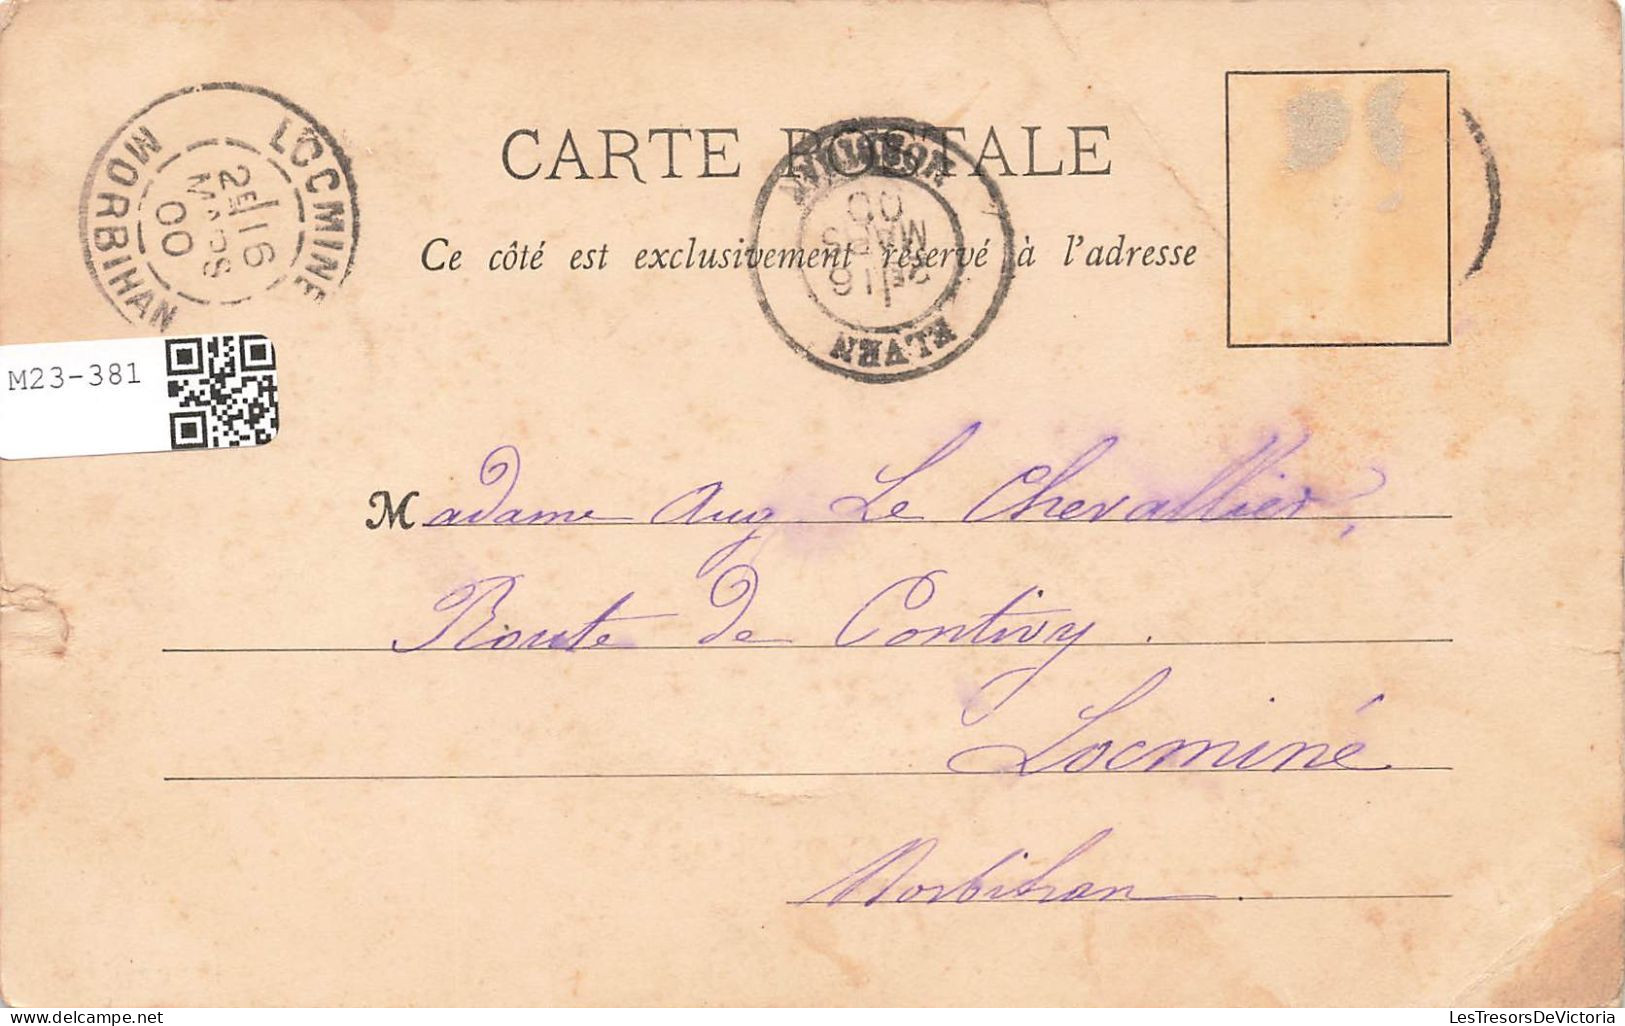 CARTE POSTALE
Ce côté est exclusivement réservé à l'adresse
LOCMINÉ
2E/16
MARS
00
MORBIHAN
MORBIHAN
00
MARS
2E/16
ELVEN
M23-381
Madame Aug Le Chevallier,
Route de Pontivy.
Locminé
Morbihan.
LesTresorsDeVictoria
LesTresorsDeVictoria